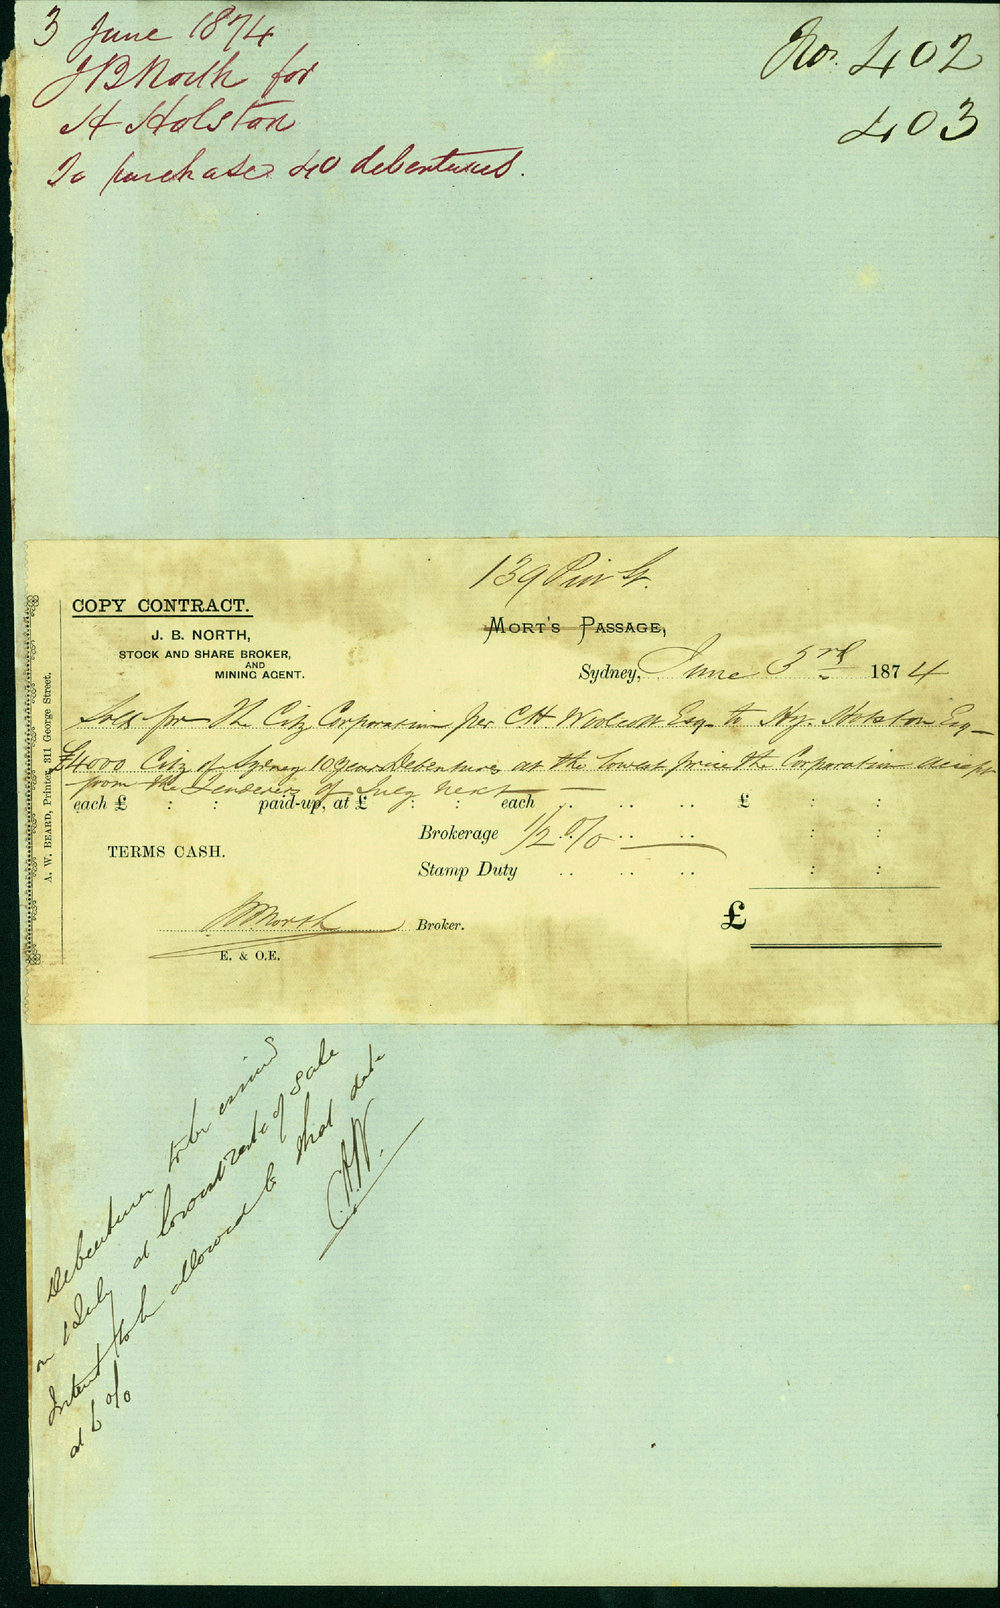 3 June 1874
J B North for
H Holston
To purchase 40 debentures.
No. 402
403
139 Pitt St.
COPY CONTRACT.
J. B. NORTH,
STOCK AND SHARE BROKER,
AND
MINING AGENT.
MORT'S PASSAGE,
Sydney, June 3rd 1874
Sold for The City Corporation per CH Woolcott Esq to Hy. Holston Esq—
£4000 City of Sydney 10 Years Debentures at the lowest price the Corporation accept
from the Tenders of July next —
each £ : : paid-up, at £ : : each .. .. .. £ : :
Brokerage 1/2 % .. .. : :
TERMS CASH.
Stamp Duty .. .. .. : :
JB North Broker.
£
E. & O.E.
A. W. BEARD, Printer, 311 George Street.
Debentures to be issued
on 1 July at lowest rate of sale
Interest to be allowed to that date
at 6 %
CHW.